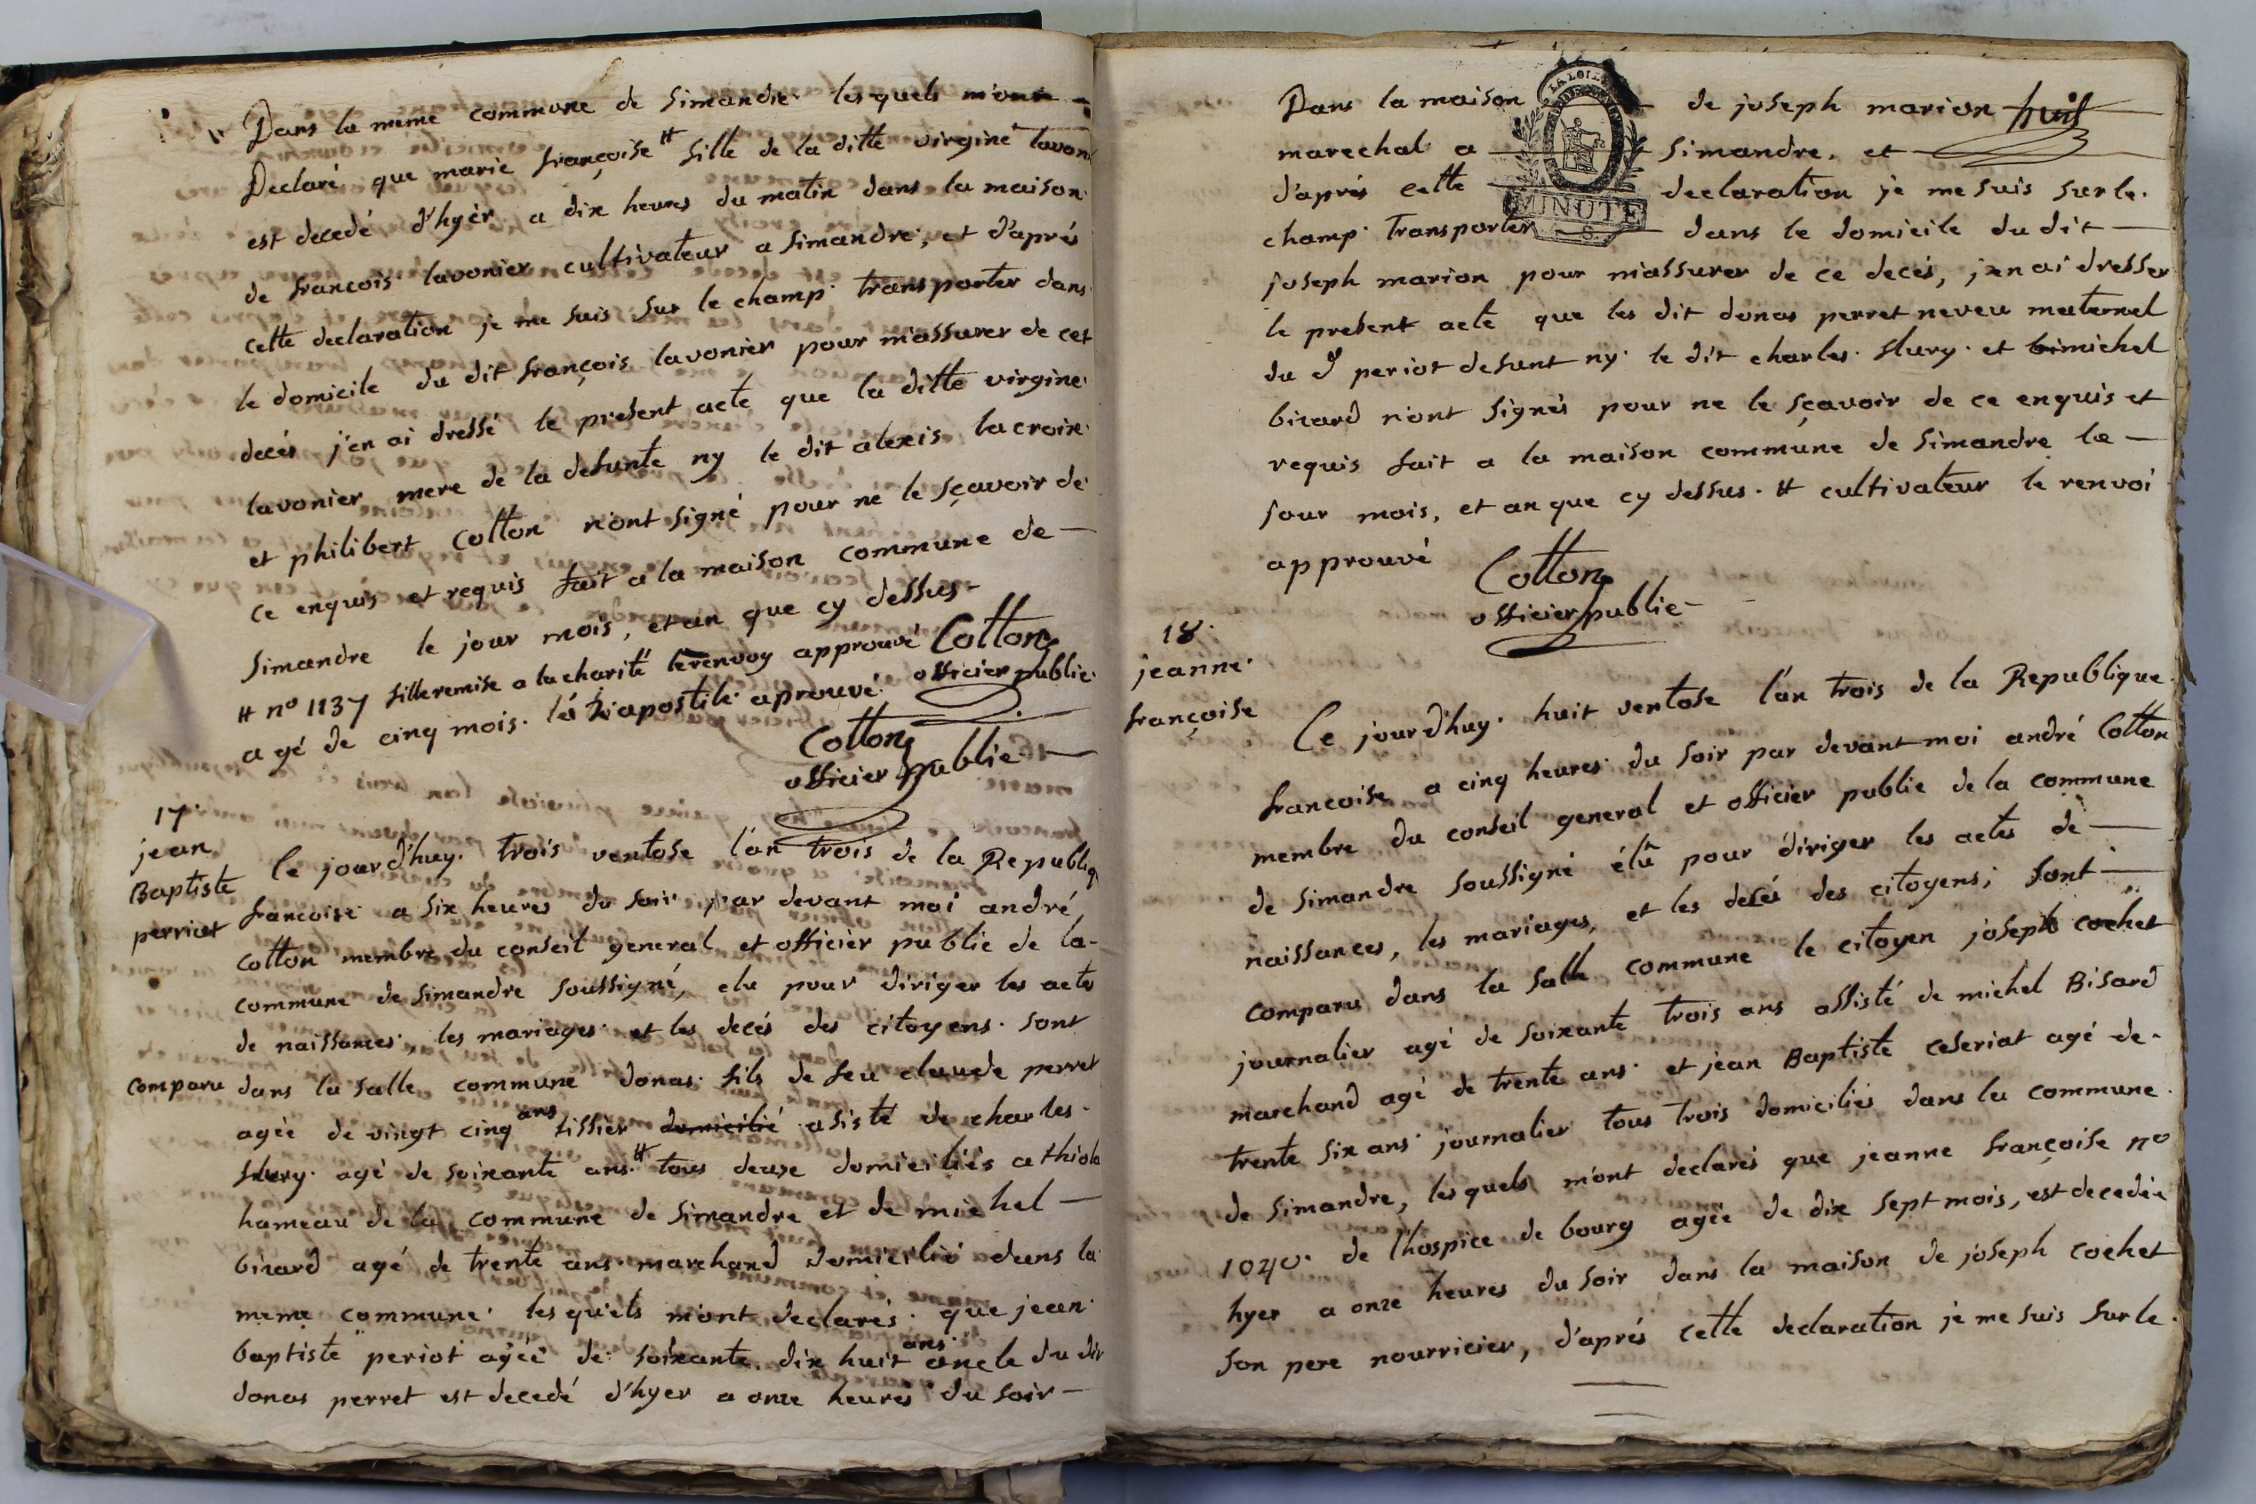 Dans la meme commune de Simandre lesquels m'ont
Declaré que marie françoise # fille de la ditte virgine lavoni
est decedé d'hyer a dix heures du matin dans la maison
de francois lavonier cultivateur a Simandre, et d'aprés
cette declaration je me suis sur le champ transporter dans
le domicile du dit françois lavonier pour m'assurer de cet
decés j'en ai dressé le present acte que la ditte virgine
lavonier mere de la defunte ny le dit alexis lacroix
et philibert Cotton n'ont signé pour ne le sçavoir de
ce enquis et requis fait a la maison commune de
Simandre le jour mois, et an que cy dessus
# no 1137 fille remise a la charité le renvoy approuvé Cotton
officier public
agé de cinq mois. la apostile aprouvé
Cotton
officier public
17
jean
Baptiste
perriot
Ce jourd'huy trois ventose l'an trois de la Republiq
francoise a six heures du soir par devant moi andré
Cotton membre du conseil general et officier public de la
commune de Simandre soussigné, elu pour diriger les actes
de naissances, les mariages et les decés des citoyens sont
comparu dans la salle commune donas fils de feu claude perret
agée de vingt cinq ans tissier domicilié asisté de charles
flury agé de soixante ans # tous deux domiciliés a thiole
hameau de la commune de Simandre et de michel
bizard agé de trente ans marchand domicilié dans la
meme commune lesquels m'ont declarés que jean
baptiste periot agéé de soixante dix huit ans oncle du dit
donas perret est decedé d'hyer a onze heures du soir
Dans la maison de joseph marion huit
marechal a Simandre, et
d'aprés cette declaration je me suis sur le
champ Transporter dans le domicile du dit
joseph marion pour m'assurer de ce decés, j'en ai dresser
le present acte que les dit donas perret neveu maternel
du d periot defunt ny le dit charles flury et bi michel
bizard n'ont signés pour ne le sçavoir de ce enquis et
requis fait a la maison commune de Simandre le
jour mois, et an que cy dessus. # cultivateur le renvoi
approuvé Cotton
officier public
LA LOI
MINUTE
8 S.
18
jeanne
françoise
Ce jourd'huy huit ventose l'an trois de la Republique
francoise a cinq heures du soir par devant moi andré Cotton
membre du conseil general et officier public de la commune
de Simandre soussigné élû pour diriger les actes de
naissances, les mariages, et les decés des citoyens, sont
comparu dans la salle commune le citoyen joseph cochet
journalier agé de soixante trois ans assisté de michel Bisard
marchand agé de trente ans et jean Baptiste ceseriat agé de
trente six ans journalier tous trois domiciliés dans la commune
de Simandre, lesquels m'ont declarés que jeanne françoise no
1040 de l'hospice de bourg agée de dix sept mois, est decedée
hyer a onze heures du soir dans la maison de joseph cochet
son pere nourricier, d'aprés cette declaration je me suis sur le